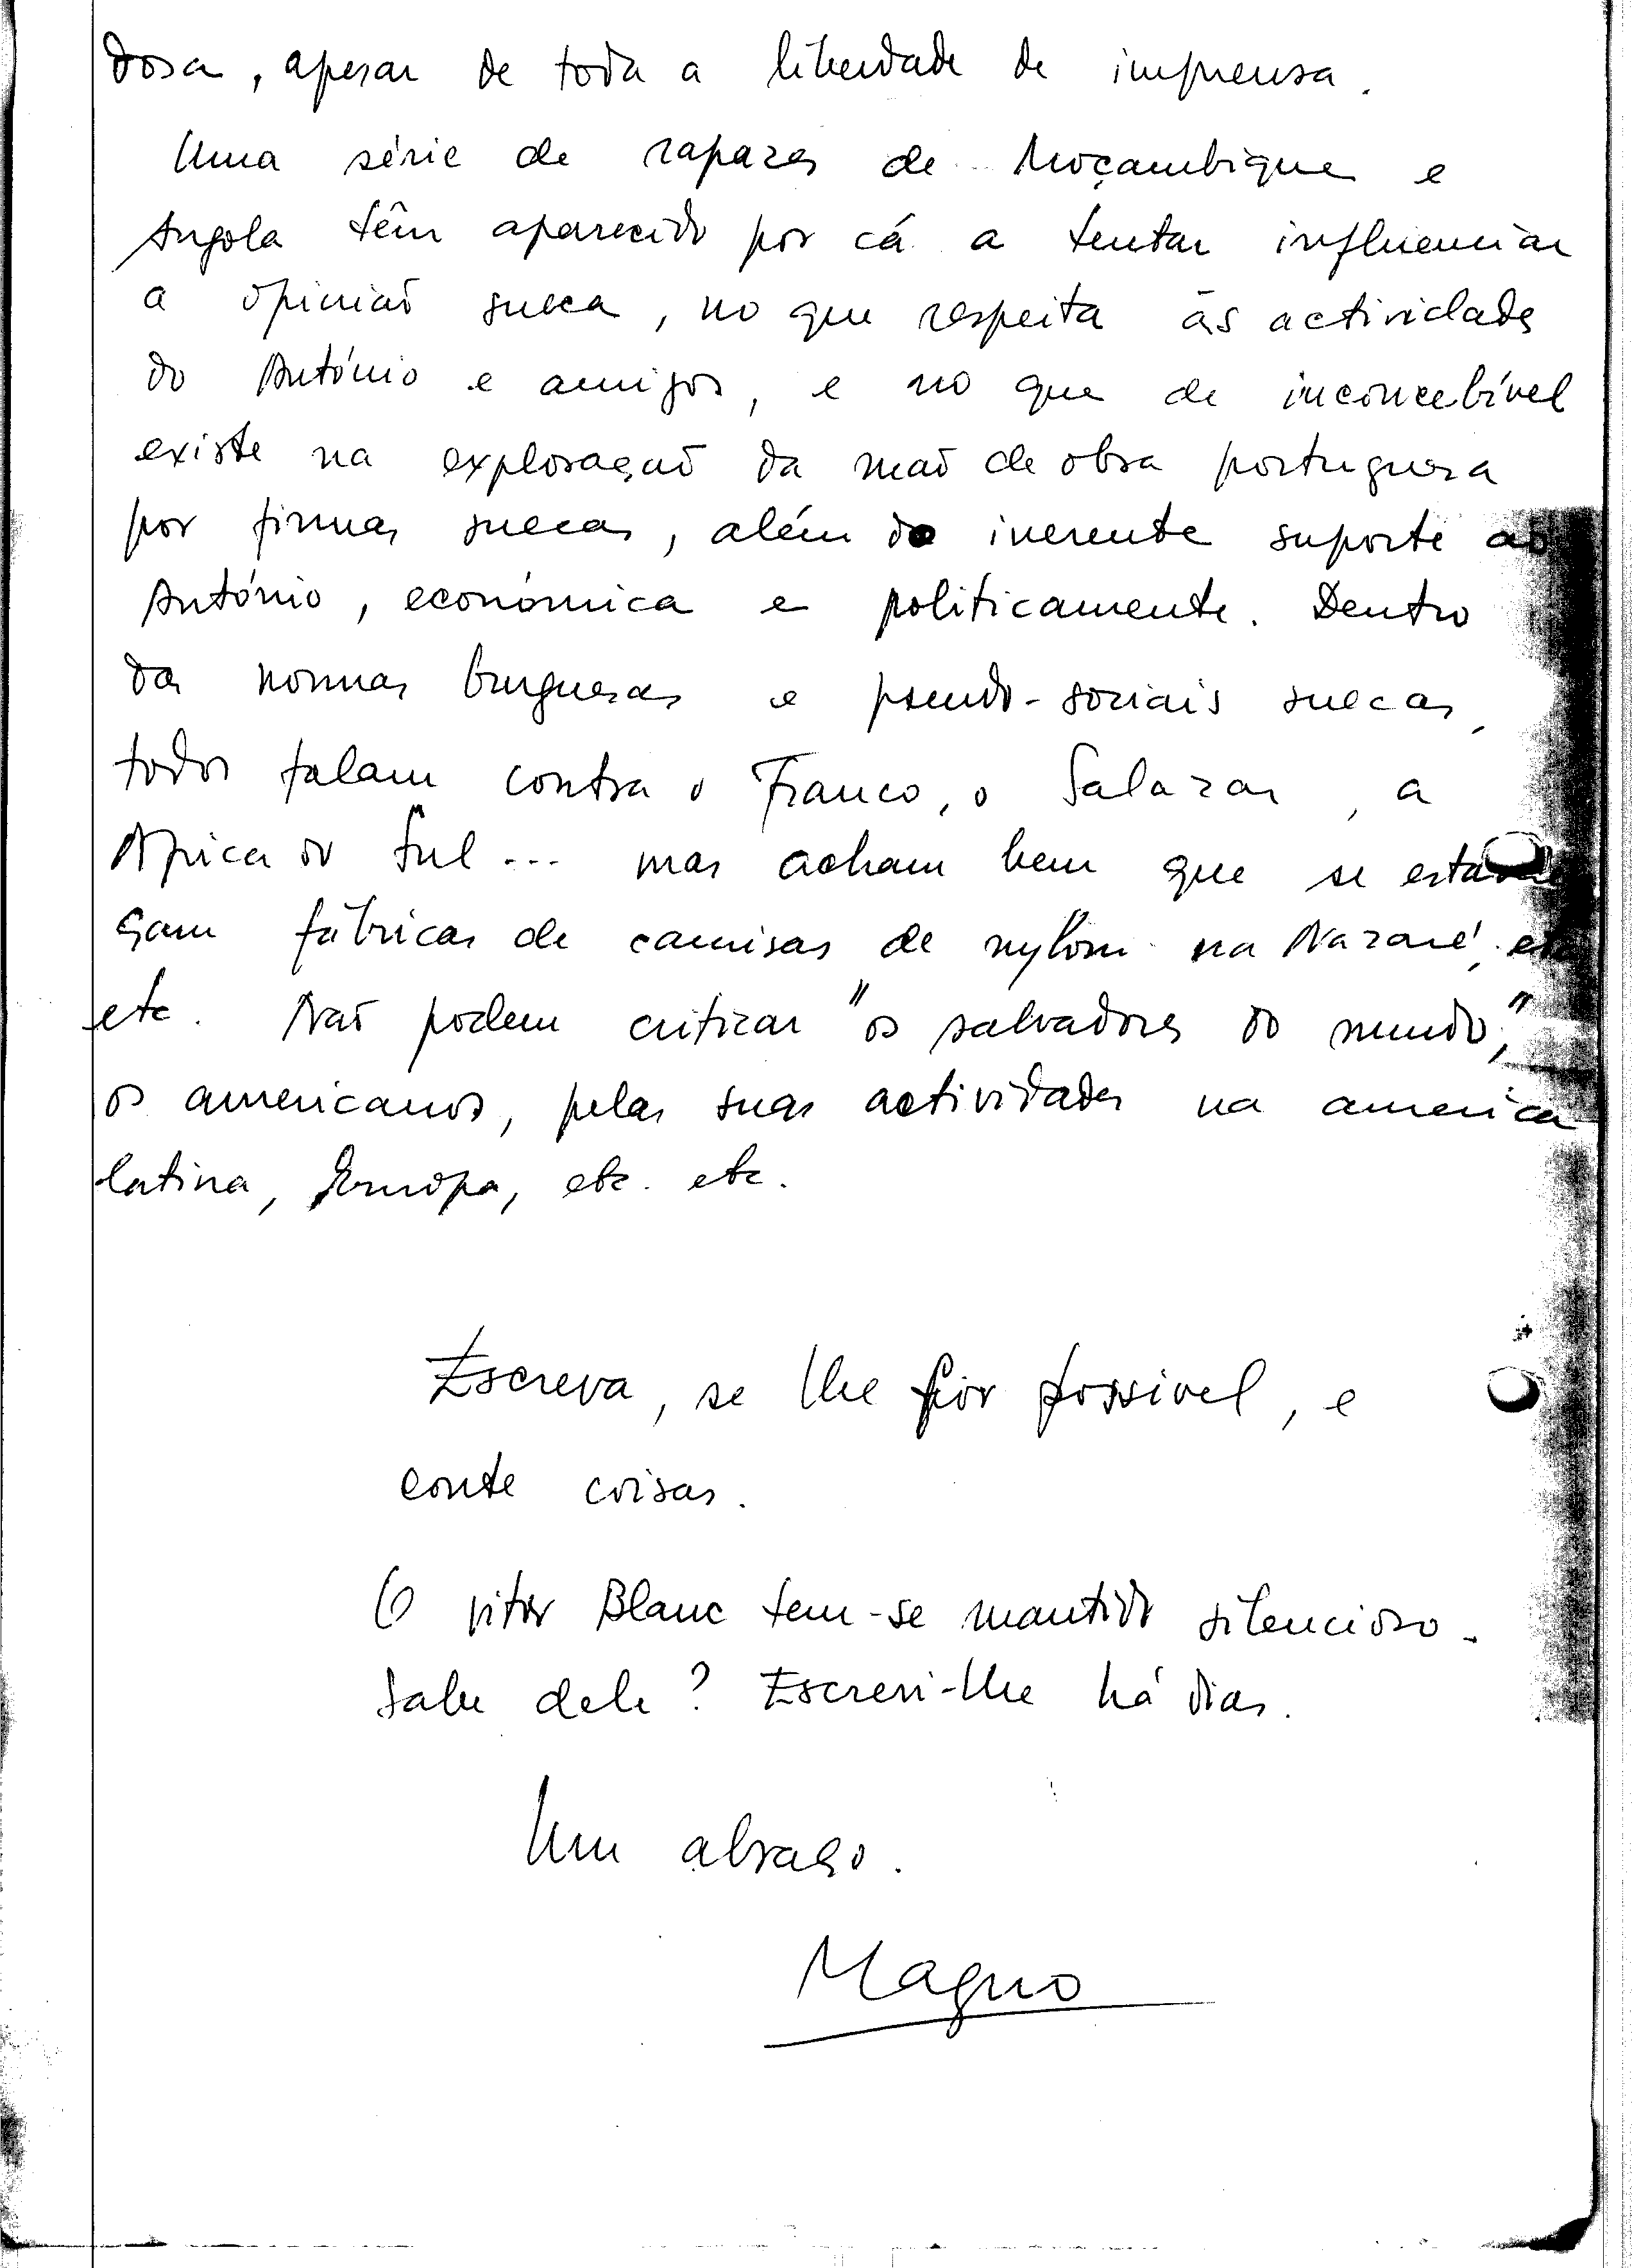 dosa, apesar de toda a liberdade de imprensa.
Uma série de rapazes de Moçambique e
Angola têm aparecido por cá a tentar influenciar
a opinião sueca, no que respeita às actividades
do António e amigos, e no que de inconcebível
existe na exploração da mão de obra portuguesa
por firmas suecas, além do inerente suporte ao
António, económica e politicamente. Dentro
das normas burguesas e pseudo-sociais suecas,
todos falam contra o Franco, o Salazar, a
Africa do Sul... mas acham bem que se estabele
çam fábricas de camisas de nylon na Nazaré, etc
etc. Não podem criticar "os salvadores do mundo",
os americanos, pelas suas actividades na america
latina, Europa, etc. etc.
Escreva, se lhe fôr possivel, e
conte coisas.
O vitor Blanc tem-se mantido silencioso.
Sabe dele? Escrevi-lhe há dias.
Um abraço.
Magno